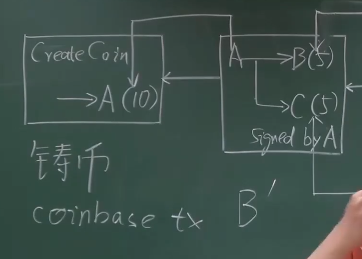 Create Coin
→A(10)
A→B(5)
→C(5)
signed by A
铸币
coinbase tx
B'